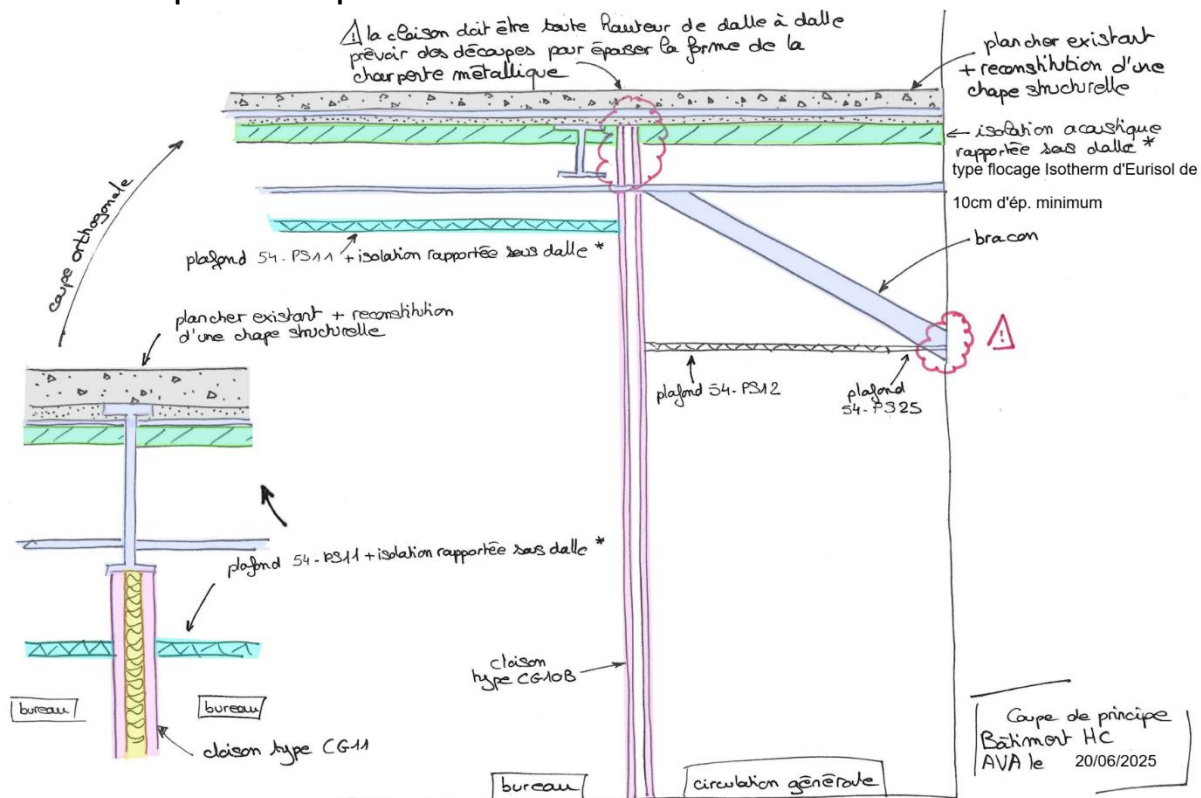 ⚠ la cloison doit être toute hauteur de dalle à dalle
prévoir des découpes pour épouser la forme de la
charpente métallique
plancher existant
+ reconstitution d'une
chape structurelle
isolation acoustique
rapportée sous dalle *
type flocage Isotherm d'Eurisol de
10cm d'ép. minimum
bracon
coupe orthogonale
plafond 54-PS11 + isolation rapportée sous dalle *
plancher existant + reconstitution
d'une chape structurelle
plafond 54-PS12
plafond
54-PS25
plafond 54-PS11 + isolation rapportée sous dalle *
cloison
type CG10B
bureau
bureau
cloison type CG11
bureau
circulation générale
Coupe de principe
Bâtiment HC
AVA le 20/06/2025